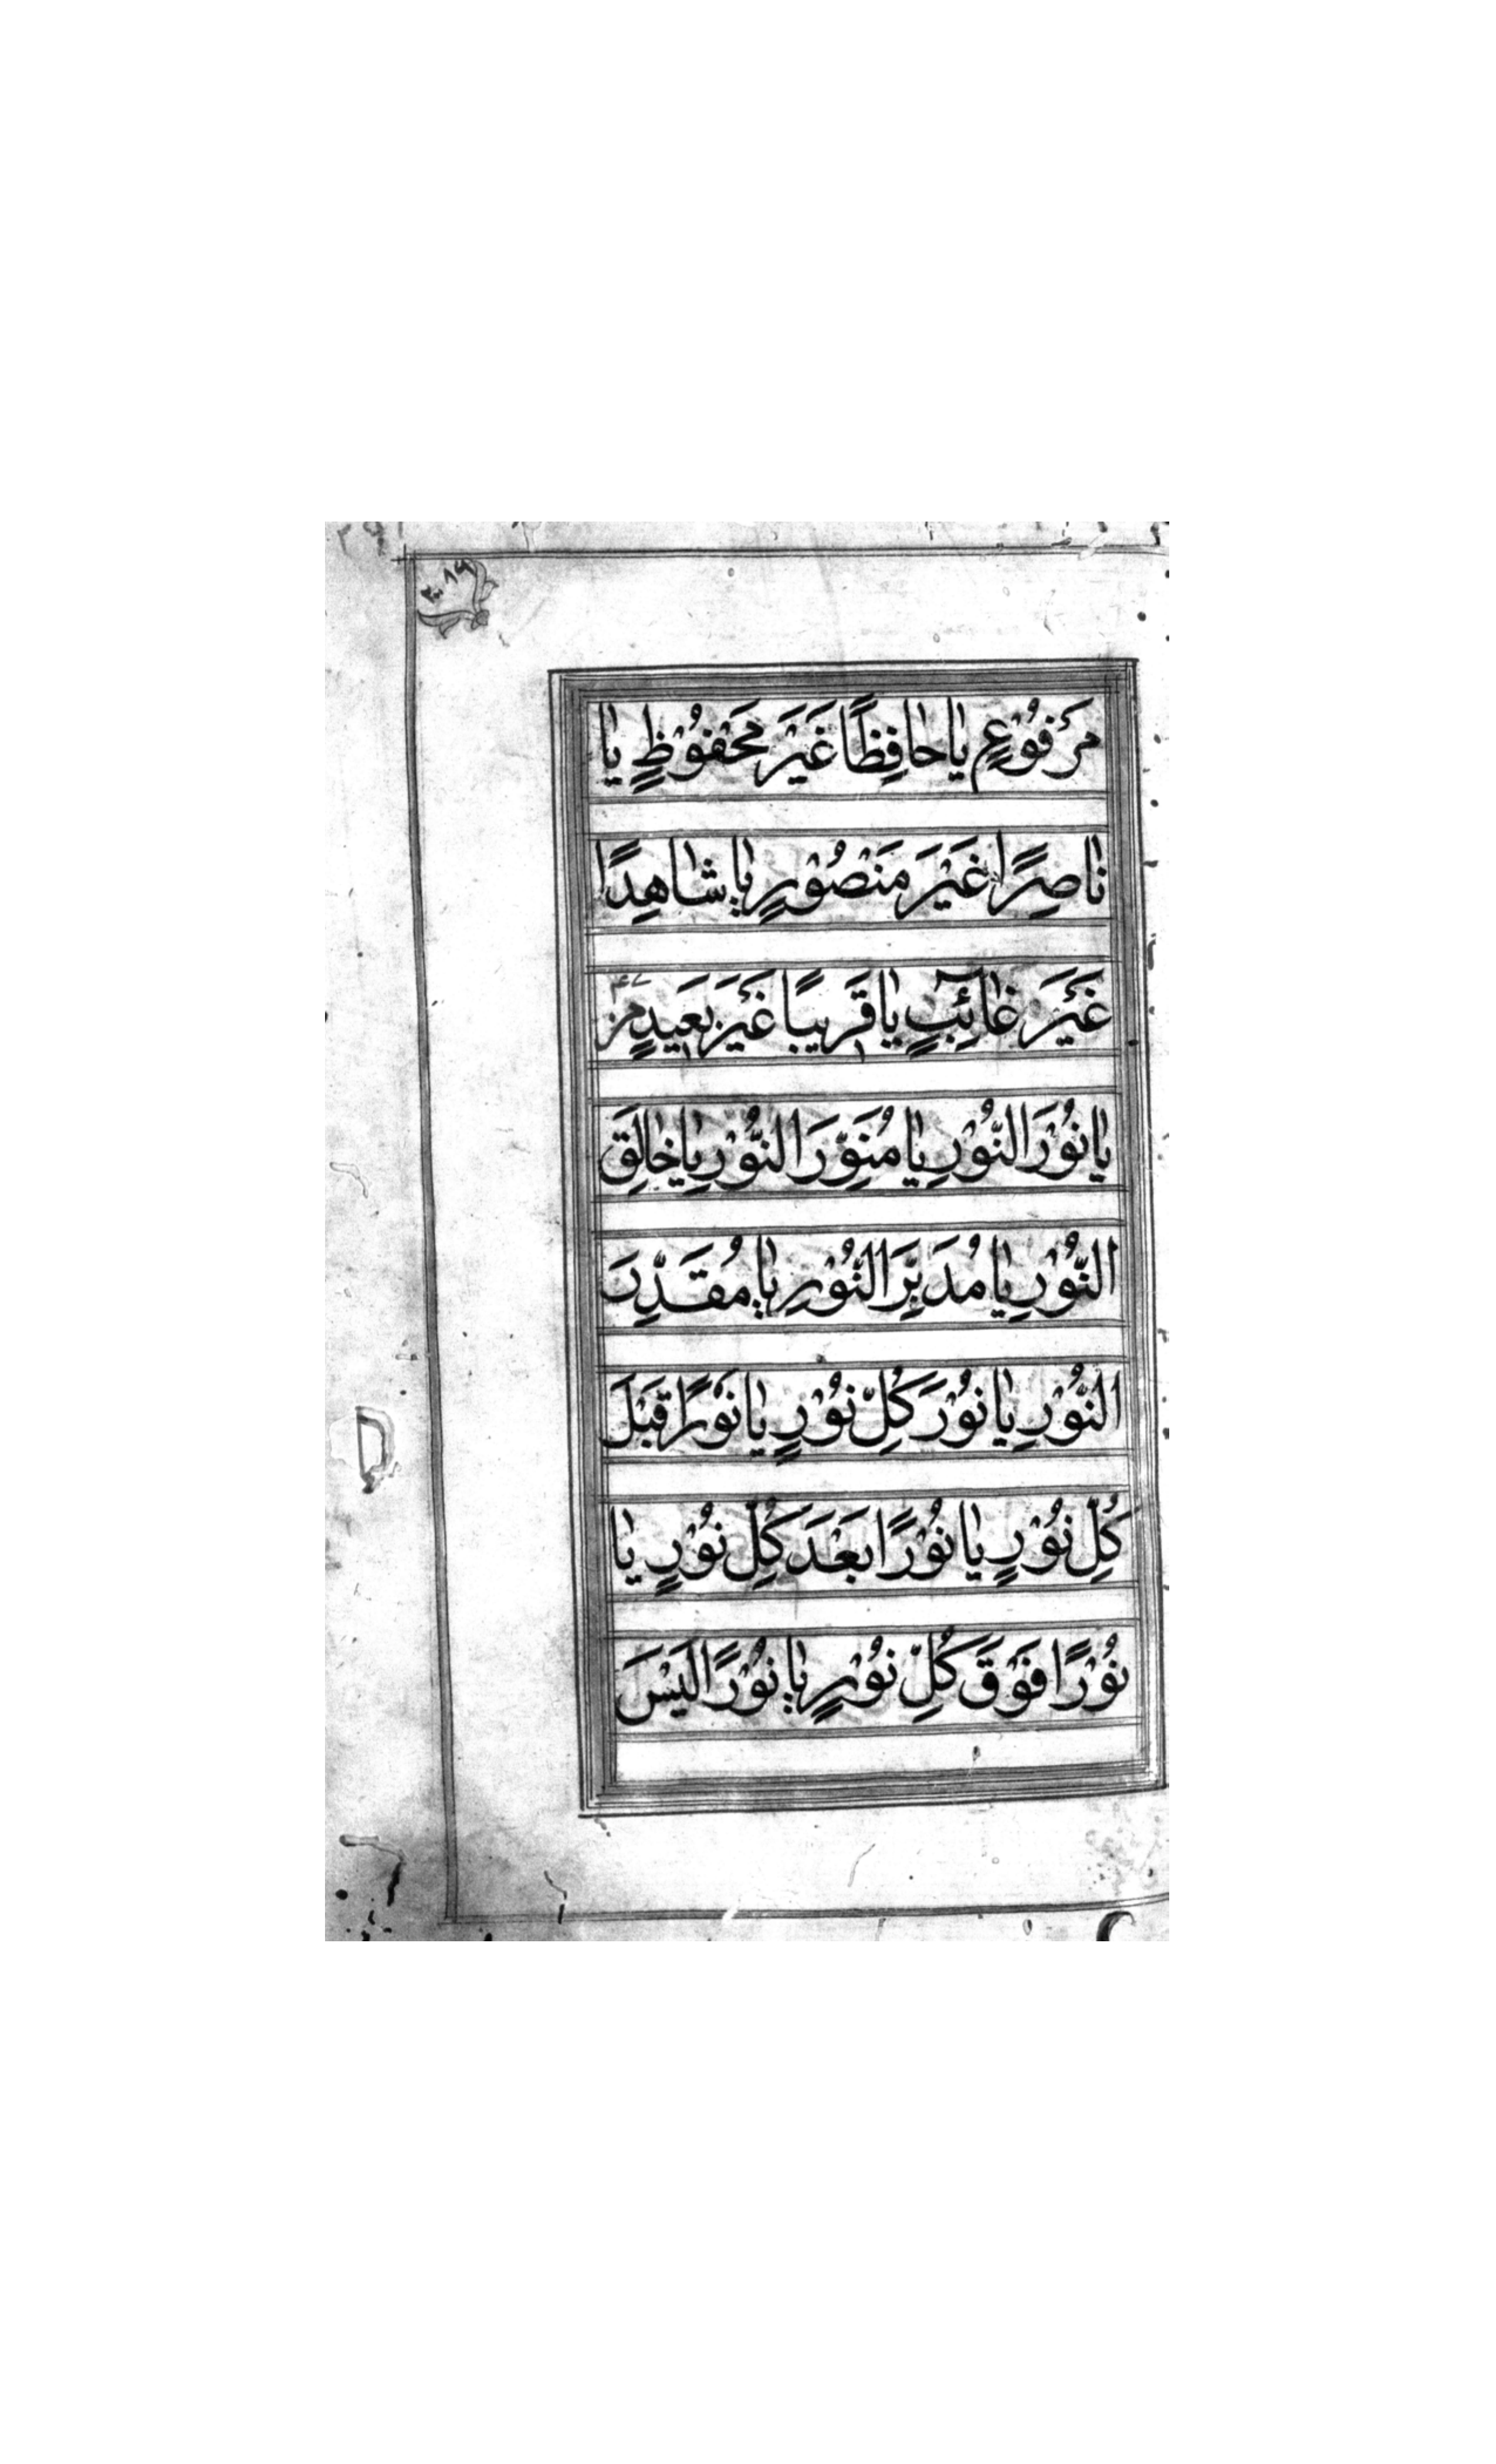 مَرْفُوْعٍ يَا حَافِظًا غَيْرَ مَحْفُوْظٍ يَا
نَاصِرًا غَيْرَ مَنْصُوْرٍ يَا شَاهِدًا
غَيْرَ غَائِبٍ يَا قَرِيبًا غَيْرَ بَعِيدٍ
يَا نُوْرَ النُّوْرِ يَا مُنَوِّرَ النُّوْرِ يَا خَالِقَ
النُّوْرِ يَا مُدَبِّرَ النُّوْرِ يَا مُقَدِّرَ
النُّوْرِ يَا نُوْرَ كُلِّ نُوْرٍ يَا نُوْرًا قَبْلَ
كُلِّ نُوْرٍ يَا نُوْرًا بَعْدَ كُلِّ نُوْرٍ يَا
نُوْرًا فَوْقَ كُلِّ نُوْرٍ يَا نُوْرًا لَيْسَ